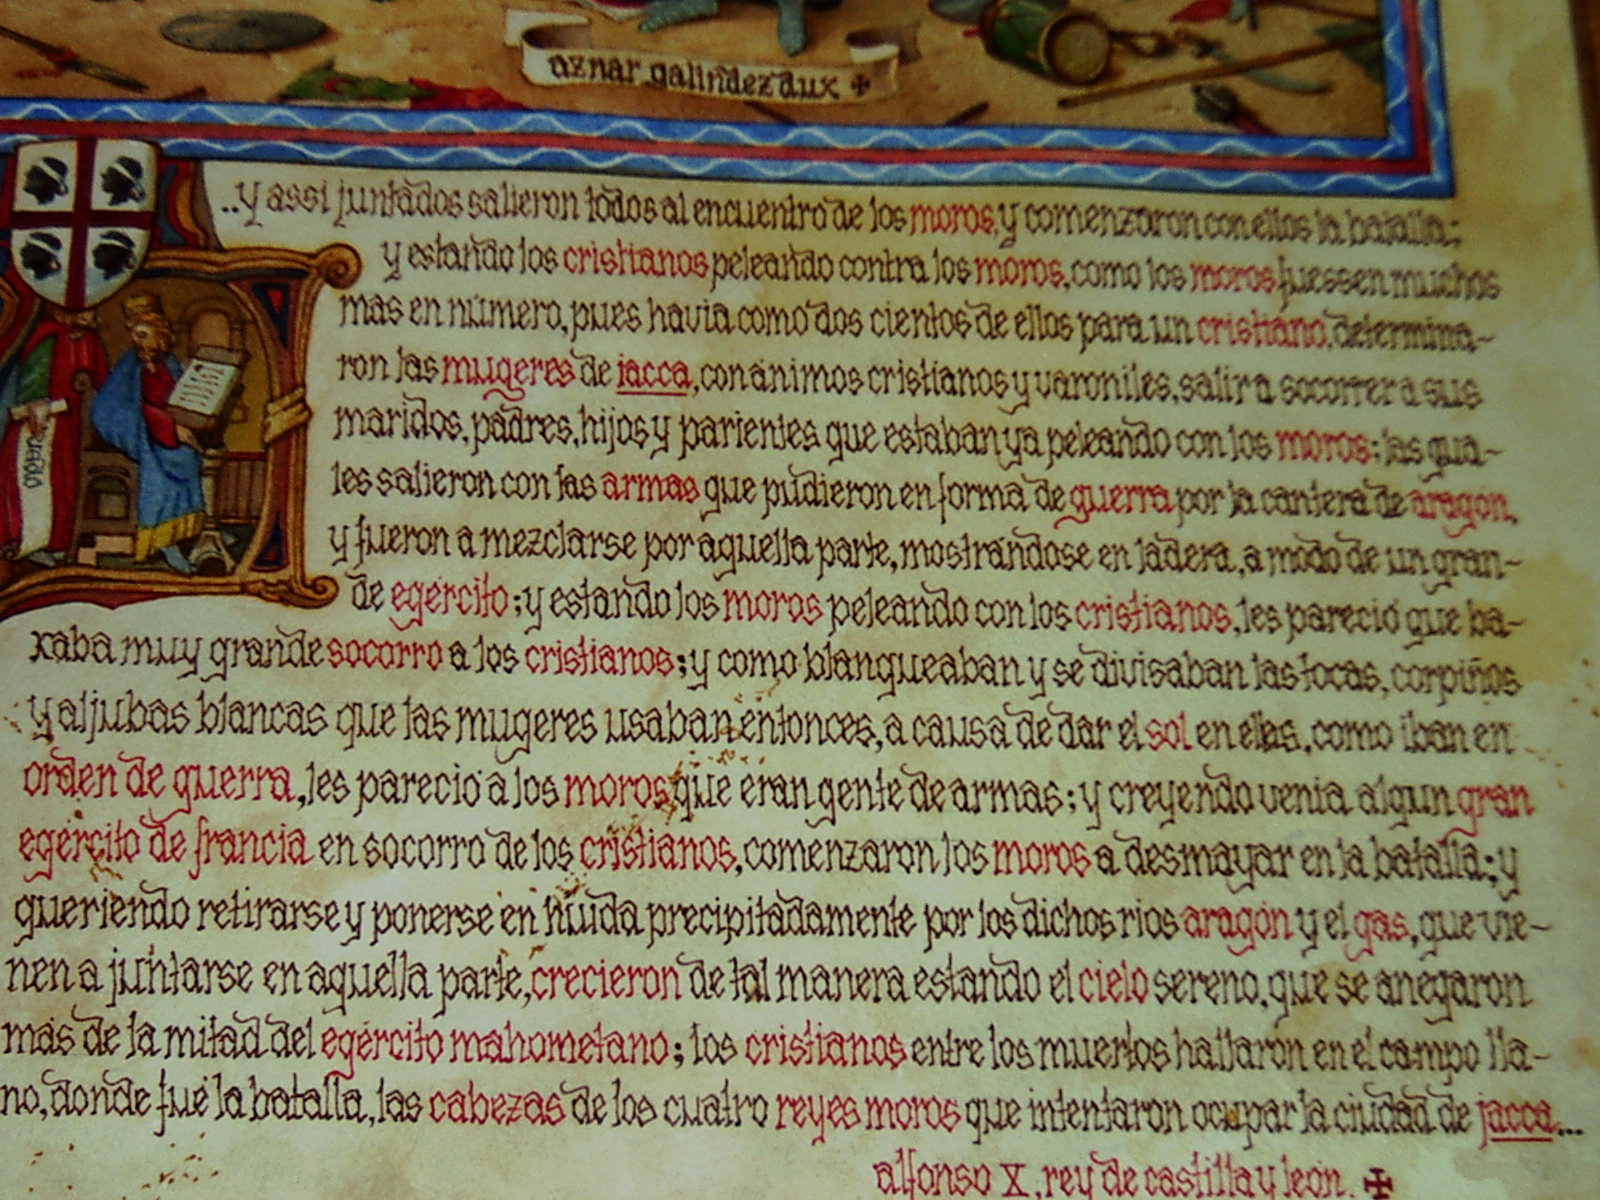 aznar galindez aux ✠
..y assi juntados salieron todos al encuentro de los moros, y comenzaron con ellos la batalla;
y estando los cristianos peleando contra los moros, como los moros fuessen muchos
mas en número, pues havia como dos cientos de ellos para un cristiano, determina-
ron las mugeres de jacca, con ánimos cristianos y varoniles, salir a socorrer a sus
maridos, padres, hijos y parientes que estaban ya peleando con los moros; las qua-
les salieron con las armas que pudieron en forma de guerra por la cantera de aragón,
y fueron a mezclarse por aquella parte, mostrándose en ladera, a modo de un gran-
de egército; y estando los moros peleando con los cristianos, les pareció que ba-
xaba muy grande socorro a los cristianos; y como blanqueaban y se divisaban las tocas, corpiños
y aljubas blancas que las mugeres usaban entonces, a causa de dar el sol en ellas, como iban en
orden de guerra, les pareció a los moros que eran gente de armas; y creyendo venia algun gran
egército de francia en socorro de los cristianos, comenzaron los moros a desmayar en la batalla; y
queriendo retirarse y ponerse en huida precipitadamente por los dichos rios aragón y el gas, que vie-
nen a juntarse en aquella parte, crecieron de tal manera estando el cielo sereno, que se anegaron
más de la mitad del egército mahometano; los cristianos entre los muertos hallaron en el campo lla-
no, donde fué la batalla, las cabezas de los cuatro reyes moros que intentaron ocupar la ciudad de jacca...
alfonso X, rey de castilla y león. ✠